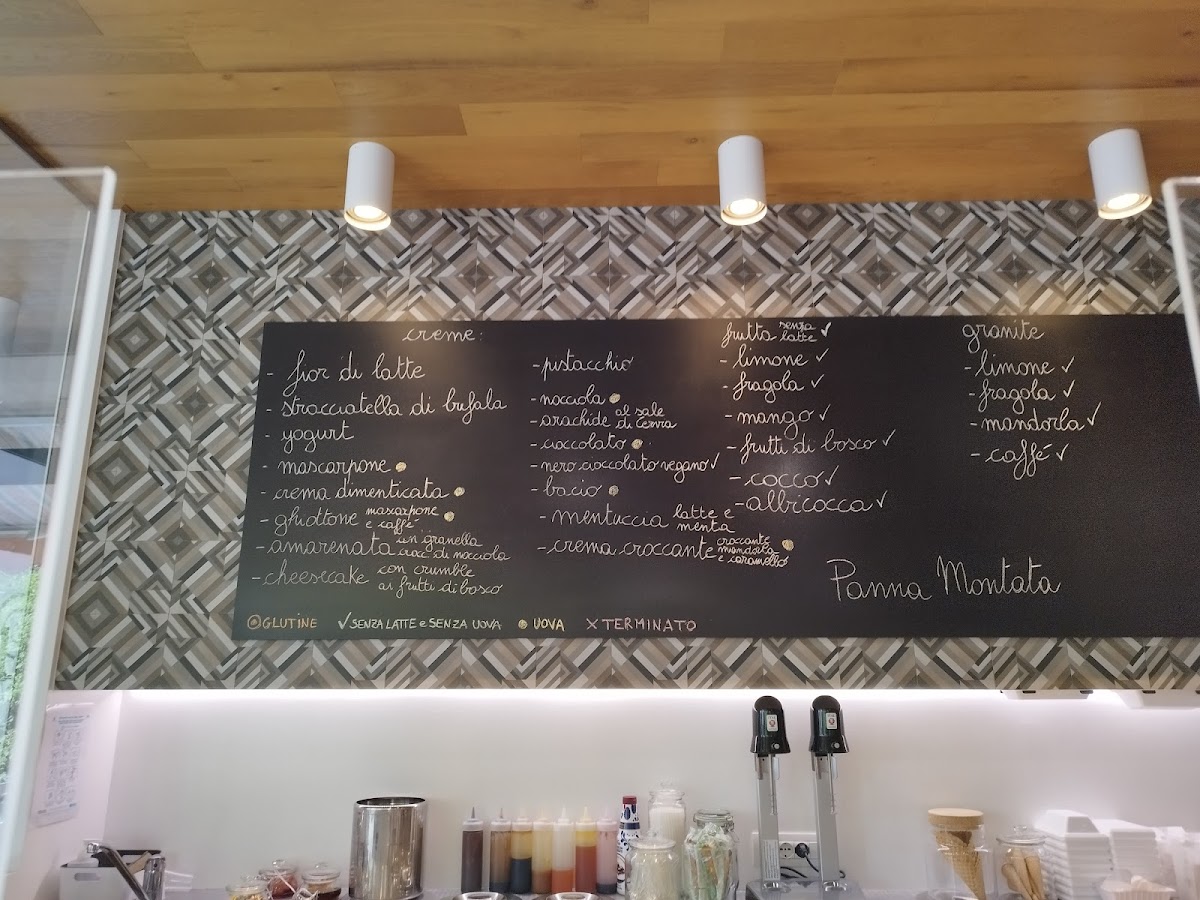 creme:
- fior di latte
- stracciatella di bufala
- yogurt
- mascarpone
- crema dimenticata
- ghiottone mascarpone e caffè
- amarenata con granella croc. di nocciola
- cheesecake con crumble ai frutti di bosco
- pistacchio
- nocciola
- arachide al sale di Cervia
- cioccolato
- nero cioccolato vegano ✓
- bacio
- mentuccia latte e menta
- crema croccante croccante mandorla e caramello
frutta senza latte ✓
- limone ✓
- fragola ✓
- mango ✓
- frutti di bosco ✓
- cocco ✓
- albicocca ✓
granite
- limone ✓
- fragola ✓
- mandorla ✓
- caffé ✓
Panna Montata
GLUTINE ✓ SENZA LATTE e SENZA UOVA UOVA X TERMINATO